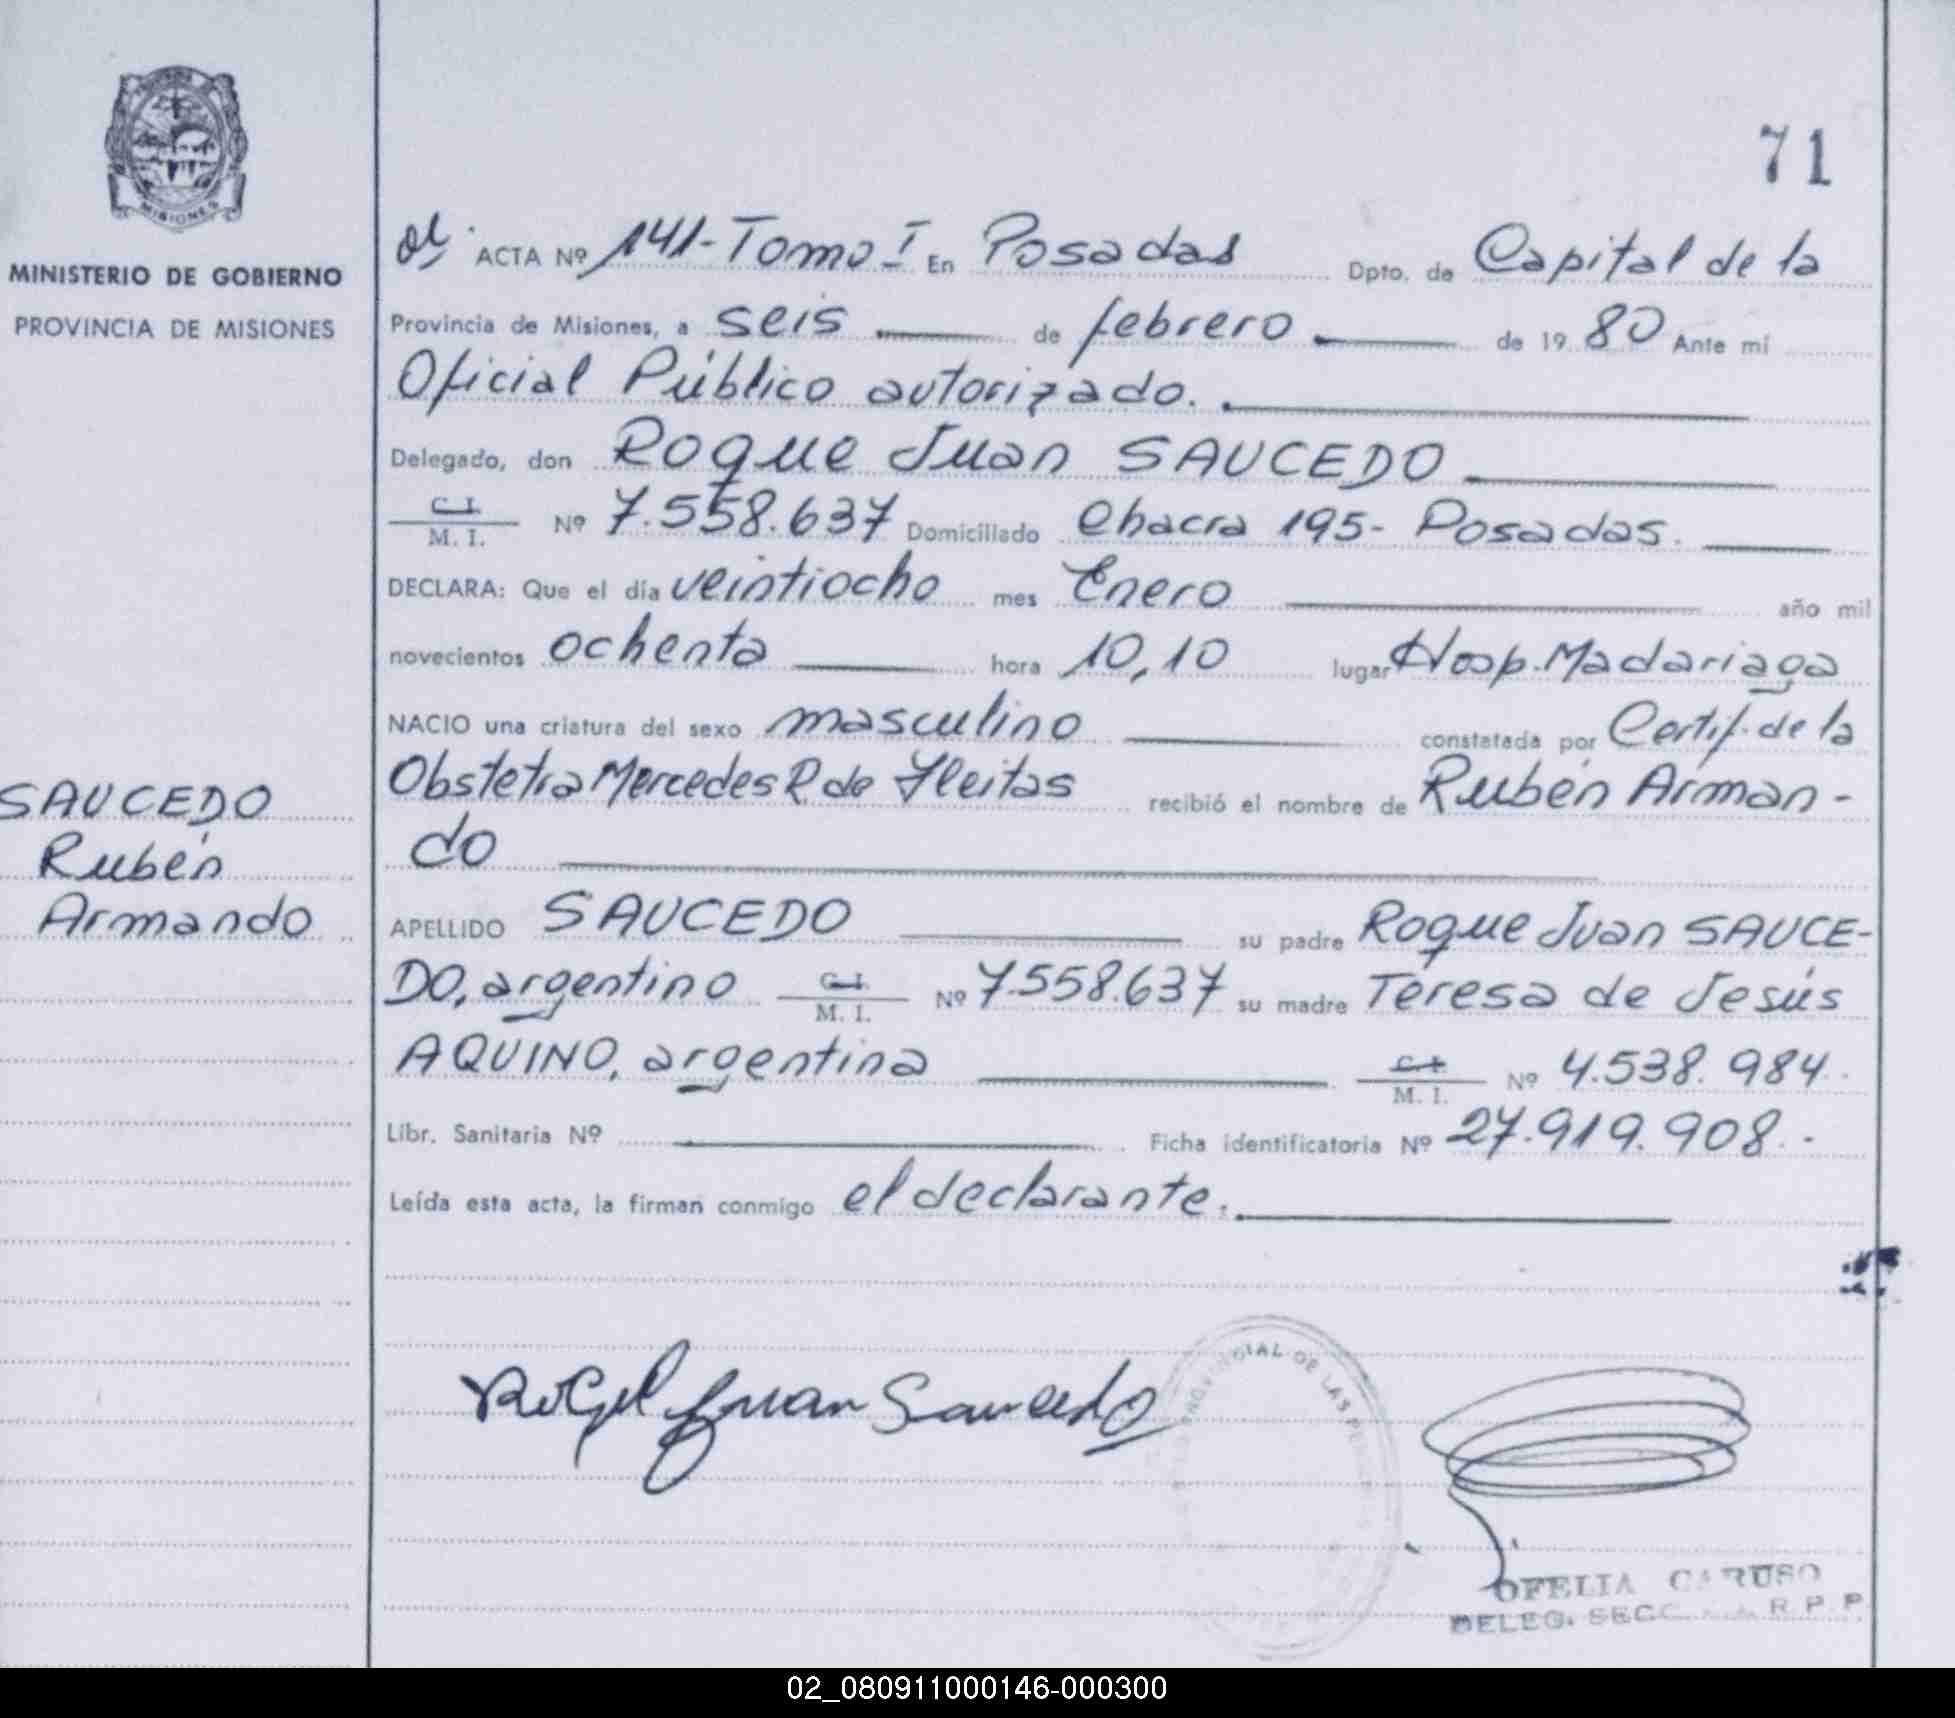 71
MISIONES
MINISTERIO DE GOBIERNO
PROVINCIA DE MISIONES
SAUCEDO
Rubén
Armando
ACTA Nº 141-Tomo I En Posadas Dpto. de Capital de la
Provincia de Misiones, a seis de febrero de 19 80 Ante mí
Oficial Público autorizado.
Delegado, don Roque Juan SAUCEDO
C. I.
M. I. Nº 7.558.637 Domiciliado Chacra 195- Posadas.
DECLARA: Que el día veintiocho mes Enero año mil
novecientos ochenta hora 10,10 lugar Hosp. Madariaga
NACIO una criatura del sexo masculino constatada por Certif. de la
Obstetra Mercedes R. de Fleitas recibió el nombre de Rubén Arman-
do
APELLIDO SAUCEDO su padre Roque Juan SAUCE-
DO, argentino C. I. M. I. Nº 7.558.637 su madre Teresa de Jesús
AQUINO, argentina C. I. M. I. Nº 4.538.984
Libr. Sanitaria Nº Ficha identificatoria Nº 27.919.908.-
Leída esta acta, la firman conmigo el declarante.
Juan Saucedo
PROVINCIAL DE LAS
OFELIA CARUSO
DELEG. SECC. R. P. P.
02_080911000146-000300